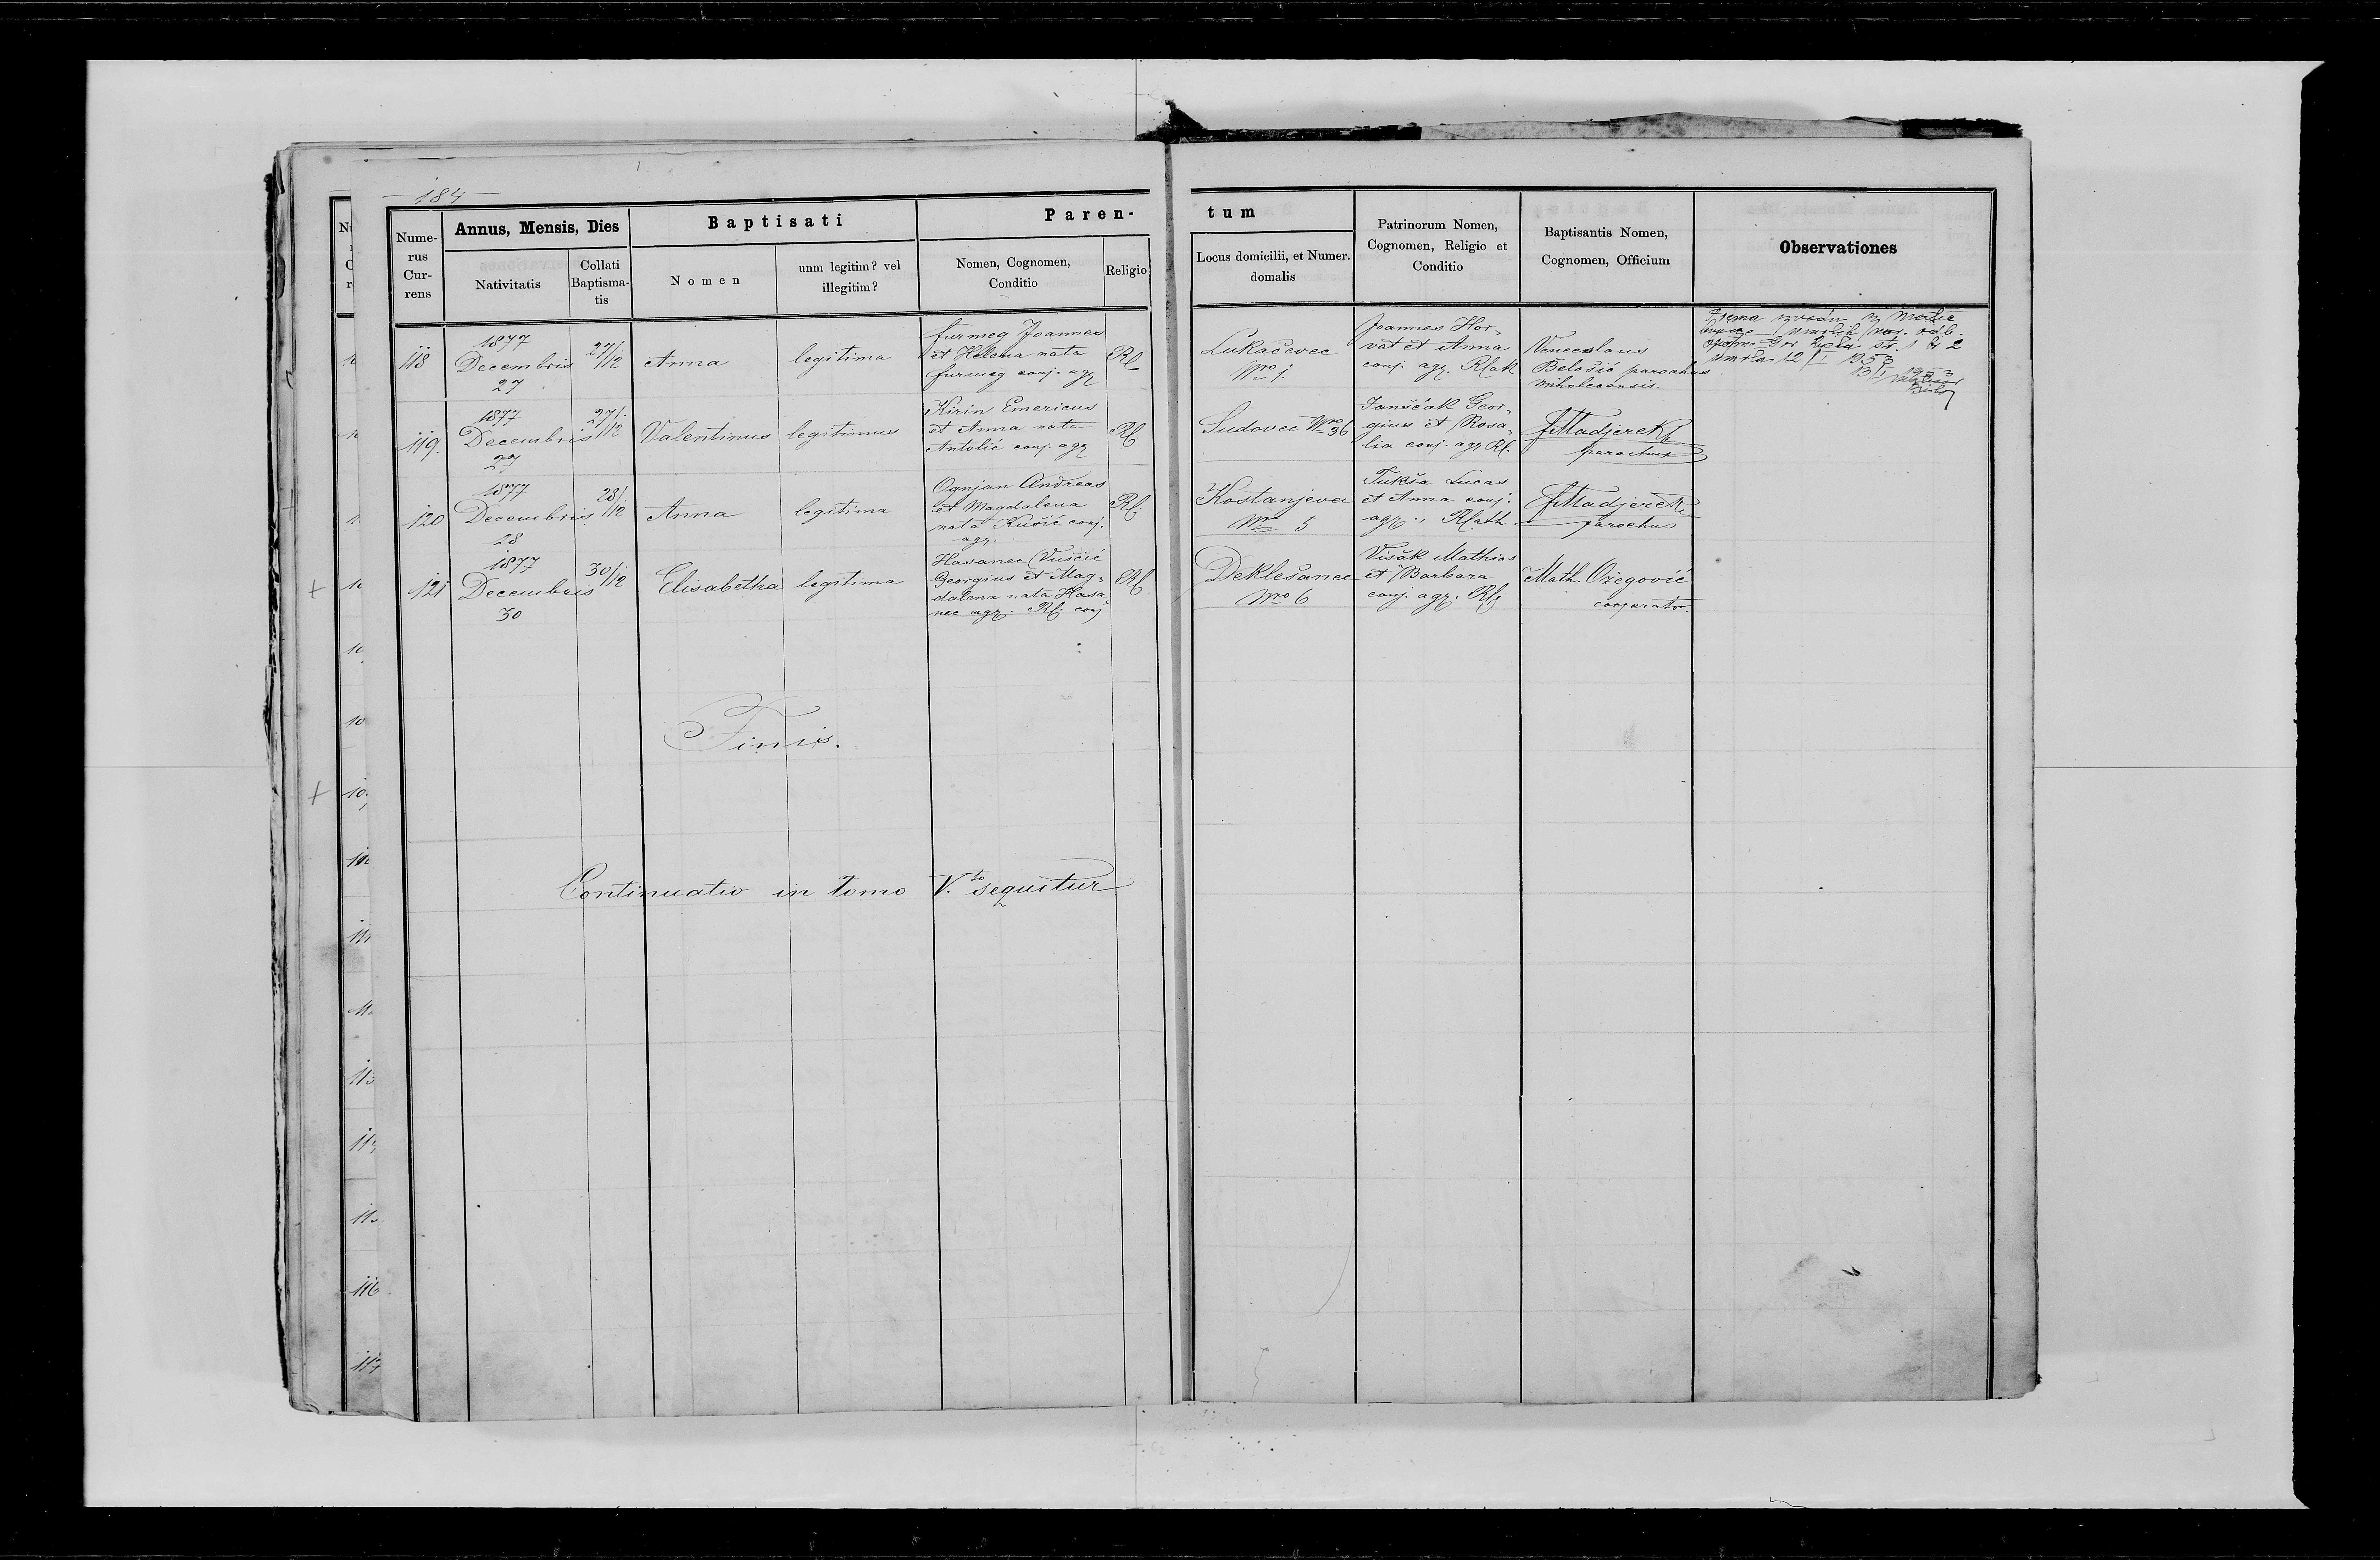 184
Nume-
rus
Cur-
rens
Annus, Mensis, Dies
Nativitatis
Collati
Baptisma-
tis
Baptisati
Nomen
unm legitim? vel
illegitim?
Paren-
Nomen, Cognomen,
Conditio
Religio
tum
Locus domicilii, et Numer.
domalis
Patrinorum Nomen,
Cognomen, Religio et
Conditio
Baptisantis Nomen,
Cognomen, Officium
Observationes
118
1877
Decembris
27
27/12
Anna
legitima
furmeg Joannes
et Helena nata
furmeg conj. agr
Rl
Lukačevec
Nro 1.
Joannes Hor-
vat et Anna
conj. agr. Rlak
Venceslaus
Belošić parochus
miholecensis.
Prema
str. 1 br 2
umrla 12/I 1953
13/I 1953
119.
1877
Decembris
27
27/12
Valentinus
legitimus
Kirin Emericus
et Anna nata
Antolić conj. agr
Rl
Sudovec Nro 36
Janščak Geor-
gius et Rosa-
lia conj. agr Rl.
Madjerek
parochus
120
1877
Decembris
28
28/12
Anna
legitima
Ognjan Andreas
et Magdalena
nata Kušić conj.
agr.
Rl.
Kostanjevec
Nro 5
Tukša Lucas
et Anna conj.
agr., Rlath
Madjerek
parochus
121
1877
Decembris
30
30/12
Elisabetha
legitima
Hasanec (Vuščić
Georgius et Mag-
dalena nata Hasa-
nec agr. Rl conj
Rl
Deklešanec
Nro 6
Višak Mathias
et Barbara
conj. agr. Rl
Math. Ožegović
cooperator.
Finis.
Continuatio in tomo V.to sequitur
116
117